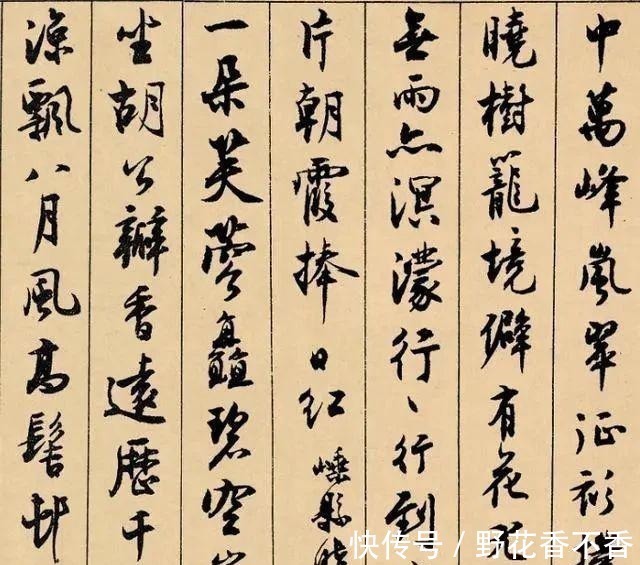 中萬峰嵐翠征衫
曉樹籠境僻有花
無雨亦溟濛行〻行到
片朝霞捧日紅 嵊縣
一朵芙蓉矗碧空
坐胡公瓣香遠歷千
涼飄八月風高髻邨
快传号 / 野花香不香